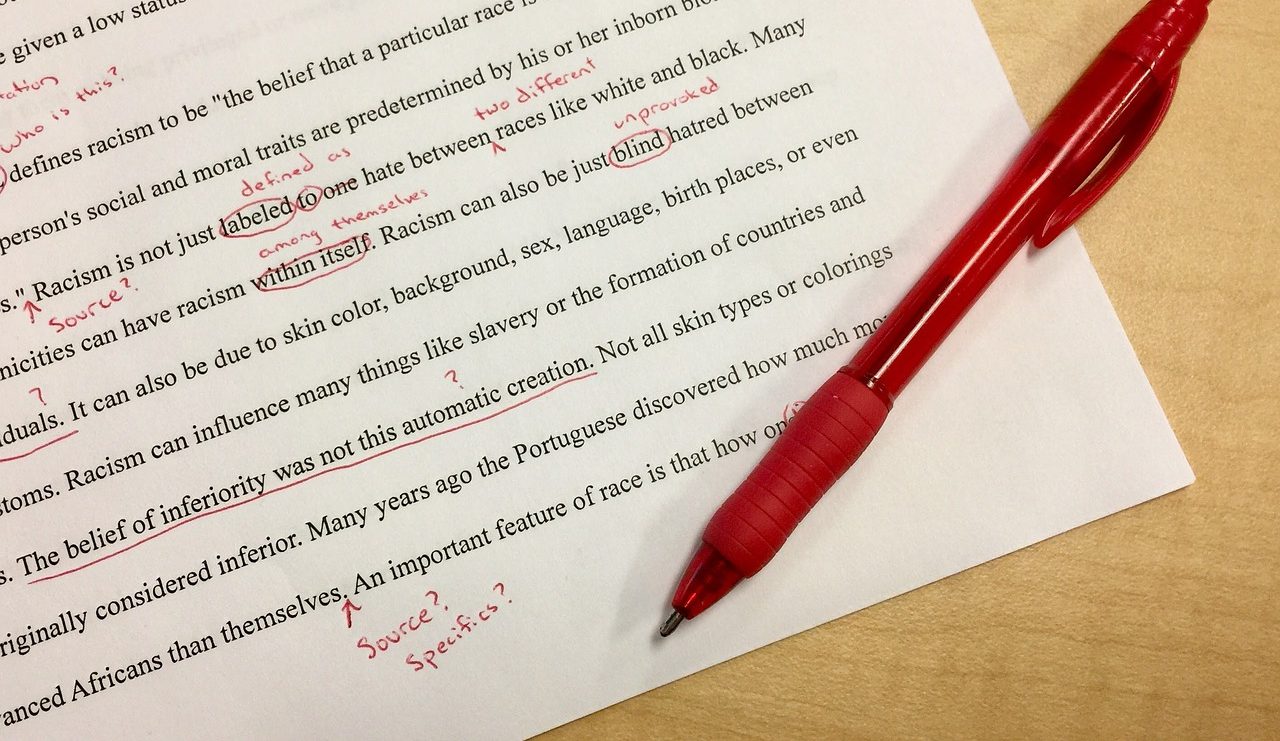 given a low status
tation
who is this?
defines racism to be "the belief that a particular race is
two different
unprovoked
person's social and moral traits are predetermined by his or her inborn
defined as
s." Racism is not just labeled to one hate between races like white and black. Many
Source?
among themselves
nicities can have racism within itself. Racism can also be just blind hatred between
?
duals. It can also be due to skin color, background, sex, language, birth places, or even
stoms. Racism can influence many things like slavery or the formation of countries and
?
s. The belief of inferiority was not this automatic creation. Not all skin types or colorings
riginally considered inferior. Many years ago the Portuguese discovered how much
vanced Africans than themselves. An important feature of race is that how
Source?
Specifics?